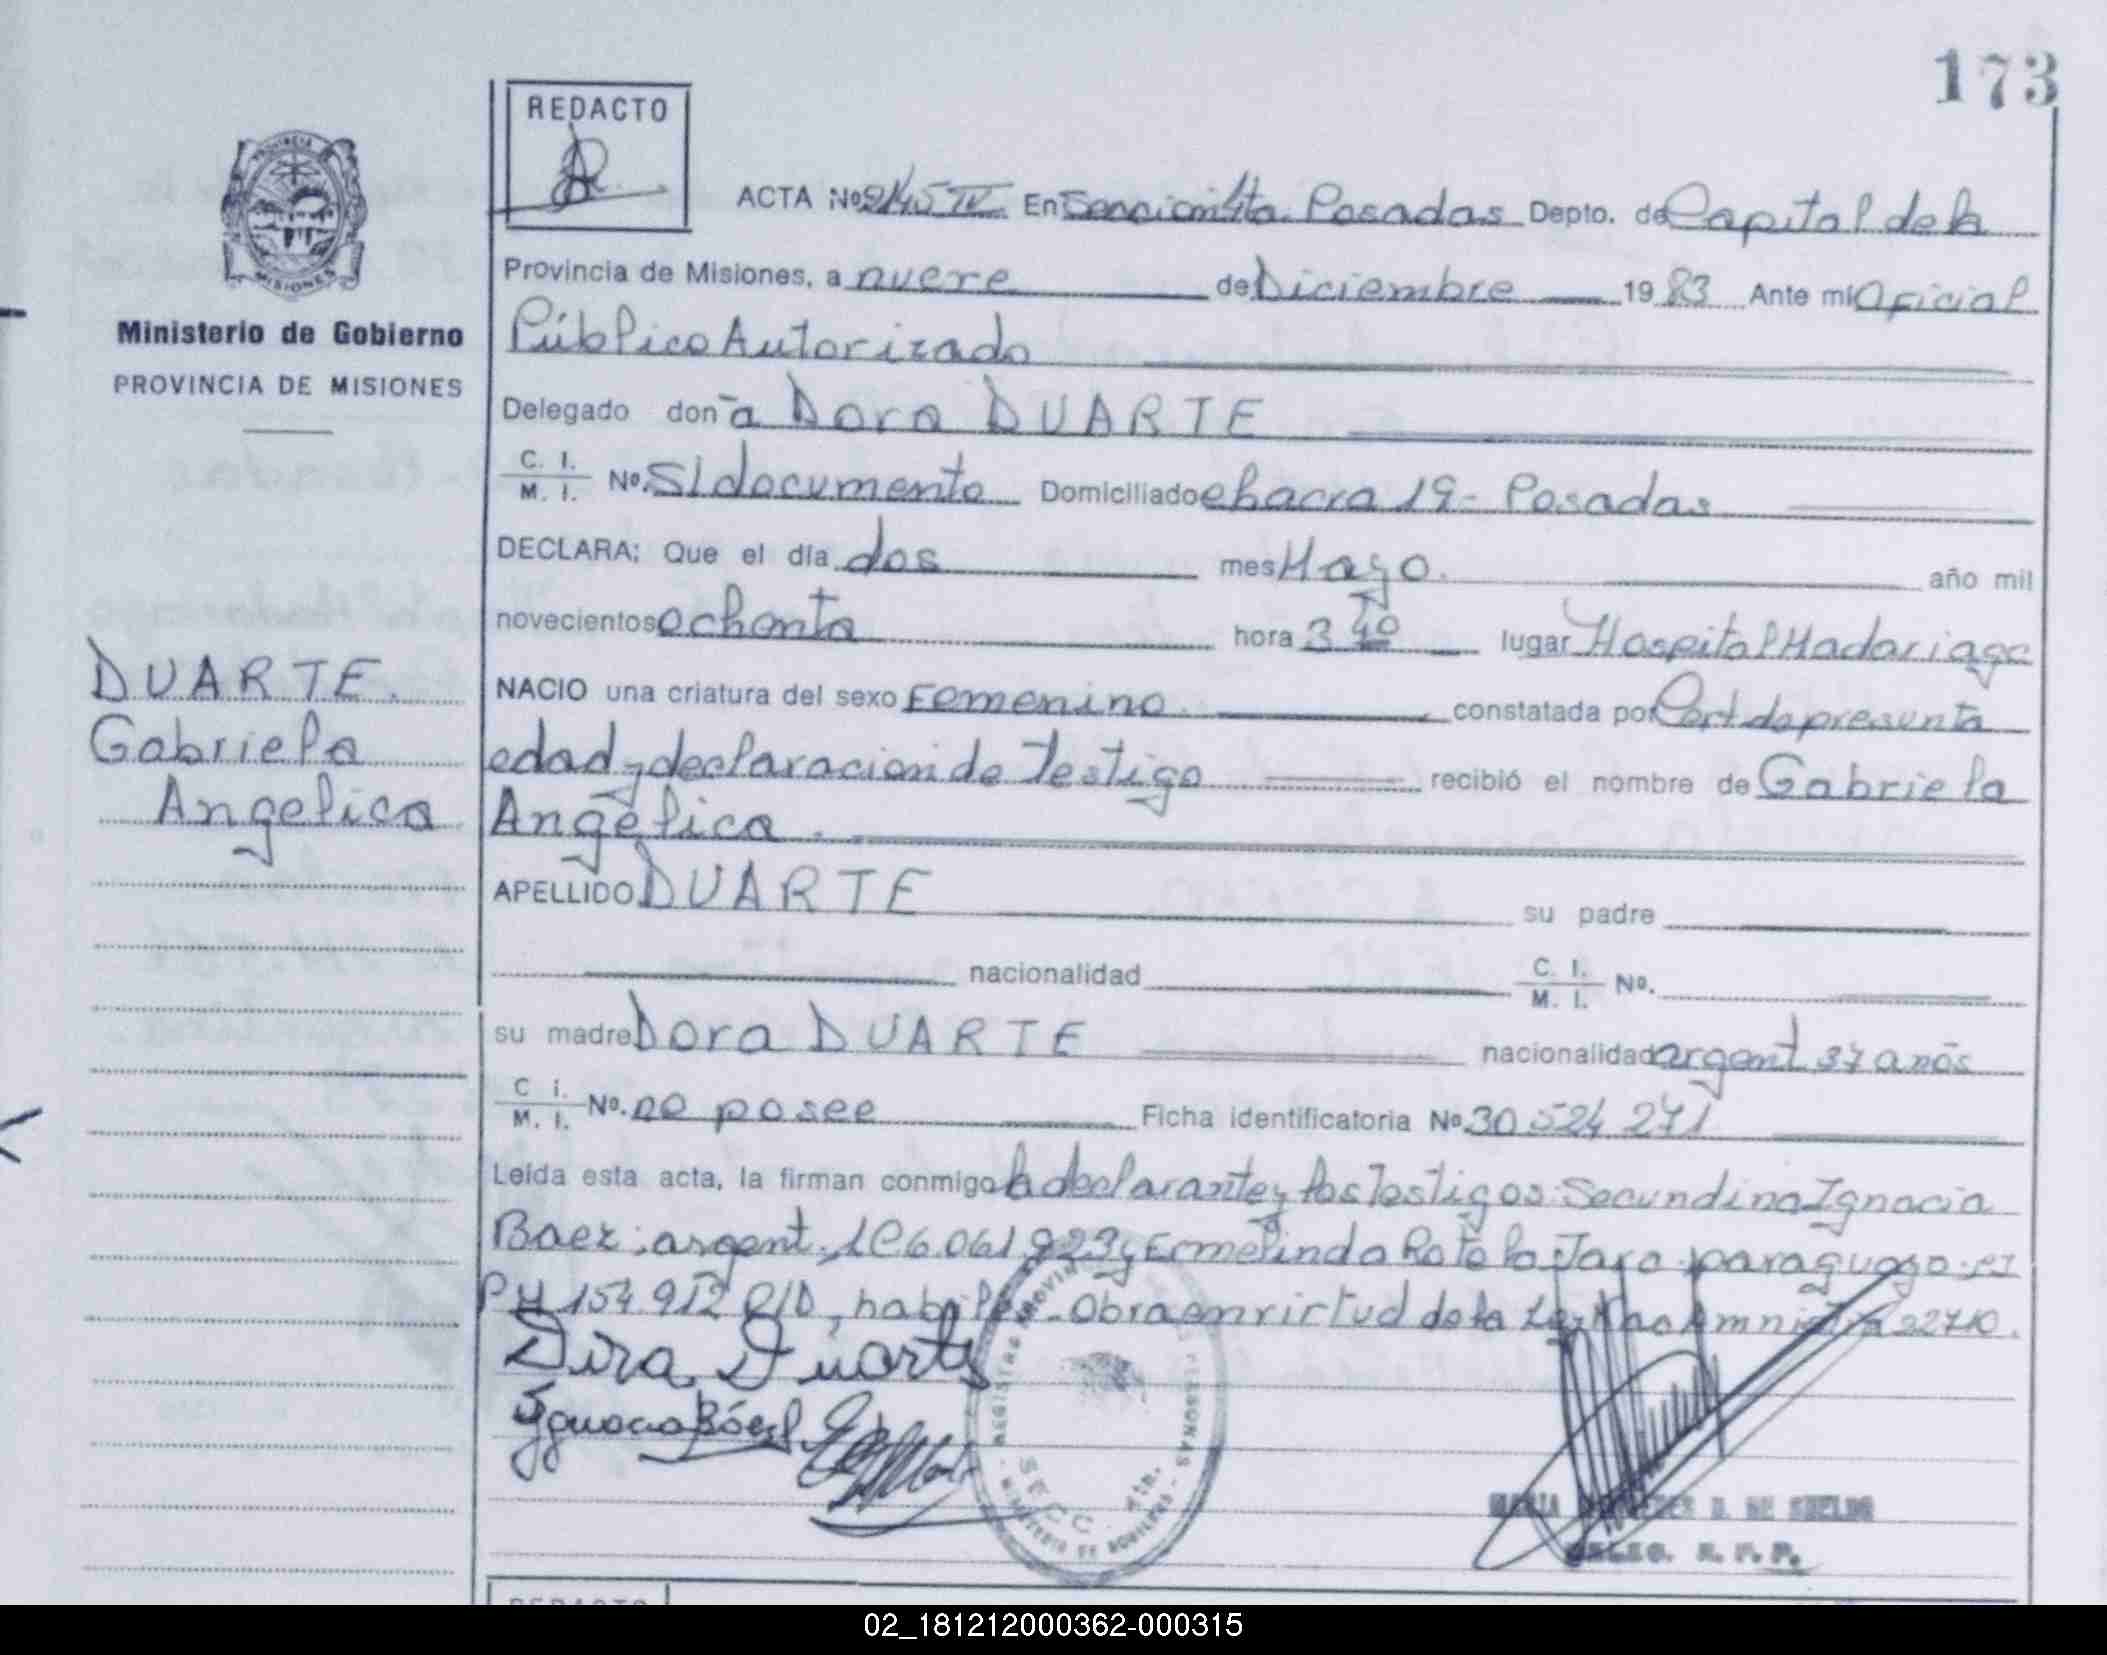 173
REDACTO
PROVINCIA DE
MISIONES
Ministerio de Gobierno
PROVINCIA DE MISIONES
ACTA Nº 2145 IV En Sección 4ta. Posadas Depto. de Capital de la
Provincia de Misiones, a nueve de Diciembre 19 83 Ante mi Oficial
Público Autorizado
Delegado don~a Dora DUARTE
C. I. / M. I. Nº. S/documento Domiciliado chacra 19 - Posadas
DECLARA: Que el día dos mes Mayo. año mil
novecientos ochenta hora 3 40 lugar Hospital Madariaga
NACIO una criatura del sexo Femenino. constatada por Cert. de presunta
edad y declaración de Testigo recibió el nombre de Gabriela
Angélica.
APELLIDO DUARTE su padre
nacionalidad C. I. / M. I. Nº.
su madre Dora DUARTE nacionalidad argent. 37 años
C i. / M. I. Nº. no posee Ficha identificatoria Nº 30 524 271
Leída esta acta, la firman conmigo la declarante y los Testigos: Secundino Ignacio
Baez; argent., LE 6.061.923 y Ermelinda Rotela Jara paraguayo. CI
PM 154.912 , habiles - Obra en virtud de la Ley Nac Amnistia 22710.
DUARTE.
Gabriela
Angelica
Dira Duarte
Ignacio Báez
REGISTRO PROVINCIAL PERSONAS
MINISTERIO DE GOBIERNO
SECC. 4ta.
MARIA D. DE SUELDO
DELEG. R. P. P.
REDACTO
02_181212000362-000315